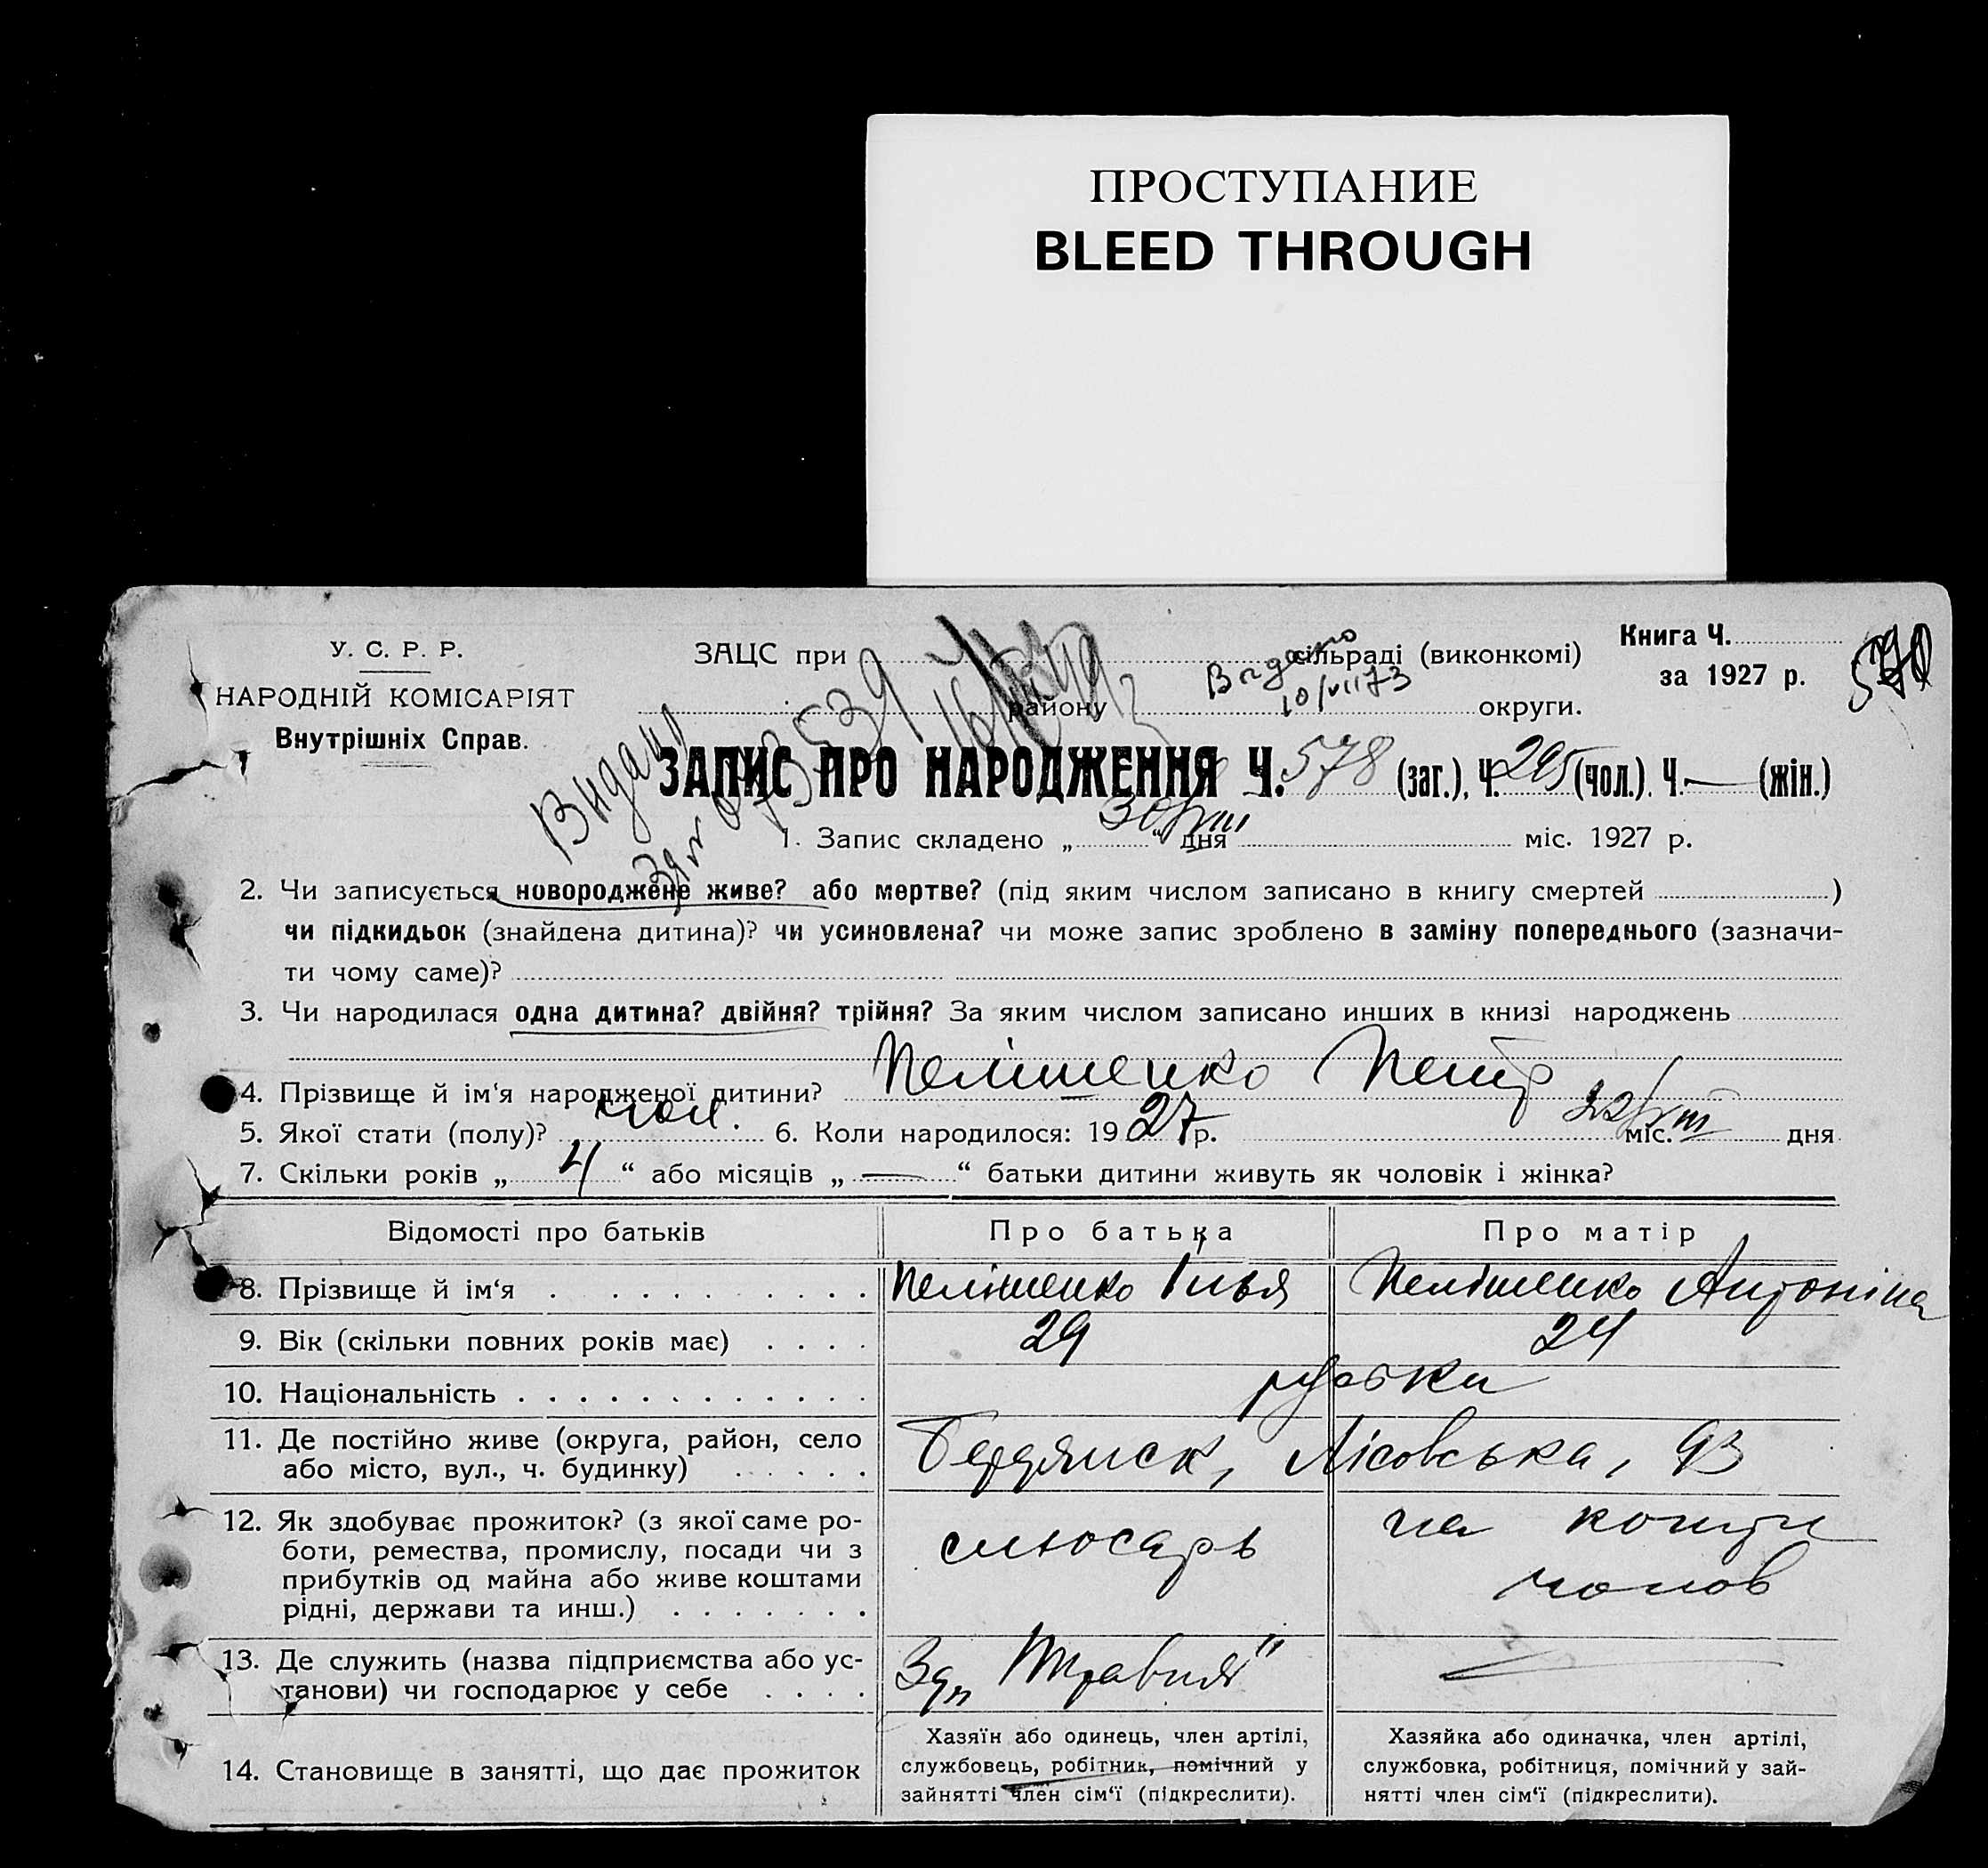 ПРОСТУПАНИЕ
BLEED THROUGH
У. С. Р. Р.
НАРОДНІЙ КОМІСАРІЯТ
Внутрішніх Справ.
ЗАЦС при сільраді (виконкомі)
району округи.
Книга Ч.
за 1927 р.
Видано
10/VII 73
Видано
ЗАПИС ПРО НАРОДЖЕННЯ Ч. 578 (заг.), Ч. 295 (чол.). Ч. — (жін.)
1. Запис складено „ 30/VIII “ дня міс. 1927 р.
2. Чи записується новороджене живе? або мертве? (під яким числом записано в книгу смертей )
чи підкидьок (знайдена дитина)? чи усиновлена? чи може запис зроблено в заміну попереднього (зазначи-
ти чому саме)?
3. Чи народилася одна дитина? двійня? трійня? За яким числом записано инших в книзі народжень
4. Прізвище й ім‘я народженої дитини? Пелішенко Петр
5. Якої стати (полу)? чол. 6. Коли народилося: 1927 р. 22/VIII міс. дня
7. Скільки років „ 4 “ або місяців „ — “ батьки дитини живуть як чоловік і жінка?
Відомості про батьків Про батька Про матір
8. Прізвище й ім‘я Пелішенко Ілья Пелішенко Антоніна
9. Вік (скільки повних років має) 29 24
10. Національність руськи
11. Де постійно живе (округа, район, село
або місто, вул., ч. будинку)
Бердянск, Лісовська, 93
12. Як здобуває прожиток? (з якої саме ро-
боти, ремества, промислу, посади чи з
прибутків од майна або живе коштами
рідні, держави та инш.)
слюсарь
на кошти
чолов
13. Де служить (назва підприємства або ус-
танови) чи господарює у себе
Зд „1 Травня"
14. Становище в занятті, що дає прожиток
Хазяїн або одинець, член артілі,
службовець, робітник, помічний у
зайнятті член сім‘ї (підкреслити).
Хазяйка або одиначка, член артілі,
службовка, робітниця, помічний у зай-
нятті член сім‘ї (підкреслити).